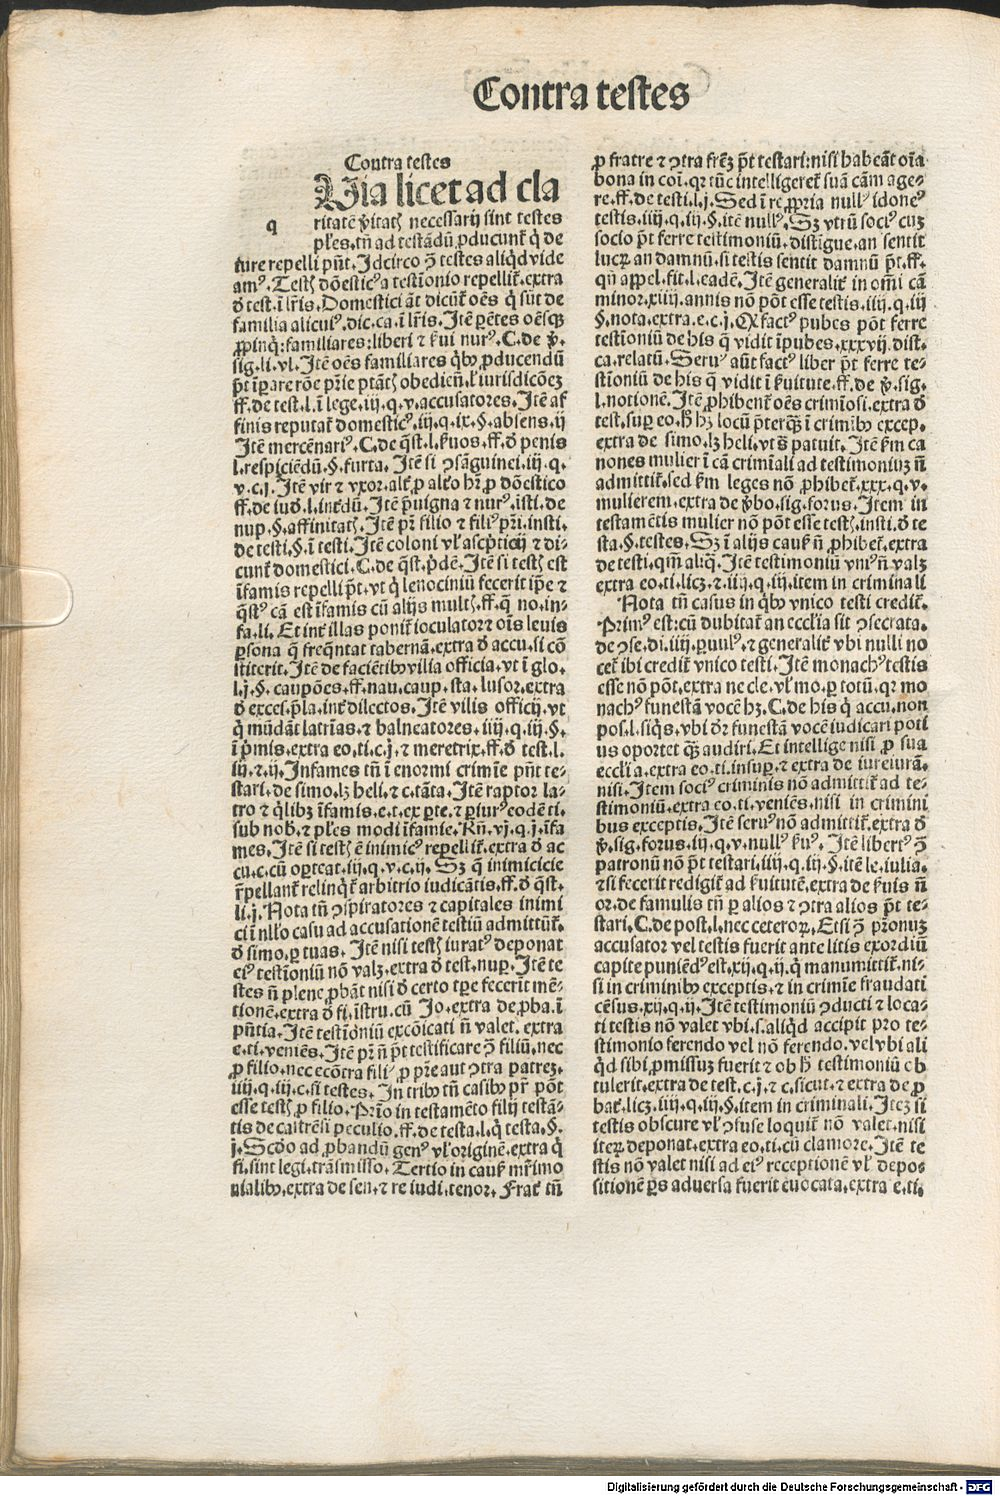 Contra testes
Contra testes
Uia licet ad cla
q ritatē ṽitatꝭ necessarij sint testes
pl'es.tñ ad testādū ꝓducunt̃ q̇ de
iure repelli pñt.Idcirco ꝯ̄ testes aliqd vide
amꝰ.Testꝭ dōesticꝰ a testīonio repellit̃.extra
đ test.ī lr̃is.Domestici āt dicūt̃ oēs q̇ sūt de
familia alicuiꝰ.dic.ca.ī lr̃is.Itē pētes oēsqꝫ
ꝓpinq̇:familiares:liberi ⁊ ẜui nurꝰ.C.de ṽ.
sig.li.vl.Itē oēs familiares qͥbꝰ ꝓducendū
ff.de test.l.ī lege.iij.q.v.accusatores.Itē af
finis reputat̃ domesticꝰ.iij.q.ix.§.absens.ij
Itē mercēnariꝰ.C.de q̄st.l.ẜuos.ff.đ penis
l.respiciēdū.§.furta.Itē si ꝯsāguinei.iij.q.
v.c.j.Itē vir ⁊ vxor.alt̃ ꝑ alt̃o hr̃ ꝓ dōestico
ff.de iuđ.l.int̃dū.Itē p̄uigna ⁊ nurꝰ.isti.de
nup.§.affinitatꝭ.Itē pr̃ filio ⁊ filiꝰ pr̃i.insti.
de testi.§.ī testi.Itē coloni vl' ascp̄ticij ⁊ di-
cunt̃ domestici.C.de q̄st.p̄dē.Itē si testꝭ est
īfamis repelli p̄t.vt q̇ lenociniū fecerit ip̄e ⁊
q̄stꝰ cā est īfamis cū alijs multꝭ.ff.q̄ no.in-
fa.li.Et int̃ illas ponit̃ ioculator ⁊ oīs leuis
ꝑsona q̄ freq̄ntat tabernā.extra đ accu.si cō
stiterit.Itē de faciētibꝰ vilia officia.vt ī glo.
l.j.§.caupōes.ff.nau.caup.sta.lusor.extra
đ exces.p̄la.int̃ dilectos.Itē vilis officij.vt
q̇ mūdāt latrīas.⁊ balneatores.iiij.q.iij.§.
ī p̄mis.extra eo.ti.c.j.⁊ meretrix.ff.đ test.l.
iij.⁊.ij.Infames tñ ī enormi crimīe pñt te-
stari.de simo.lꝫ heli.⁊ c.tāta.Itē raptor la-
tro ⁊ q̇libꝫ īfamis.e.t.ex ꝑte.⁊ ꝑiurꝰ eodē ti.
sub nob̃.⁊ pl'es modi īfamie.Rñ.vj.q.j.īfa
mes.Itē si testꝭ ē inimicꝰ repellit̃.extra đ ac
cu.c.cū oꝑteat.iij.q.v.c.ij.Sꝫ q̄ inimicicie
r̄pellant̃ relinqͥt̃ arbitrio iudicātis.ff.đ q̄st.
li.j.Nota tñ ꝯspiratores ⁊ capitales inimi
ci ī nll'o casu ad accusationē testiū admittūt̃.
đ simo.ꝑ tuas.Itē nisi testꝭ iuratꝰ deponat
eiꝰ testīoniū nō valꝫ.extra đ test.nuꝑ.Itē te
stes ñ plene ꝓbāt nisi đ certo tp̄e fecerīt mē-
tionē.extra đ fi.īstru.cū Jo.extra de ꝓba.ī
pñtia.Itē testīoniū excōicati ñ valet.extra
e.ti.veniēs.Itē pr̃ ñ p̄t testificare ꝯ̄ filiū.nec
ꝓ filio.nec ecōtra filiꝰ ꝓ pr̃e aut ꝯtra patrez.
iiij.q.iij.c.si testes.In tribꝰ tñ casibꝰ pr̃ pōt
esse testꝭ ꝓ filio.Prīo in testamēto filij testā-
tis de castrēsi peculio.ff.de testa.l.q̇ testa.§.
j.Scđo ad ꝓbandū genꝰ vl' originē.extra q̇
fi.sint legi.trāsmisso.Tertio in causꝭ mr̃imo
nialibꝰ.extra de sen.⁊ re iudi.tenor.Frat̃ tñ
ꝓ fratre ⁊ ꝯtra frēꝫ p̄t testari:nisi habeāt oīa
bona in coī.qꝛ tūc intelligeret̃ suā cām age-
re.ff.de testi.l.j.Sed ī re ꝓpria nullꝰ idoneꝰ
testis.iiij.q.iij.§.itē nullꝰ.Sꝫ vtrū sociꝰ cuꝫ
socio p̄t ferre testimoniū.distīgue.an sentit
lucꝝ an damnū.si testis sentit damnū p̄t.ff.
qñ appel.fit.l.eadē.Itē generalit̃ in om̄i cā
minor.xiiij.annis nō pōt esse testis.iiij.q.iij
§.nota.extra.e.c.j.Qȝ factꝰ pubes pōt ferre
testīoniū de his q̄ vidit īpubes.xxxvij.dist.
ca.relatū.Seruꝰ aūt factꝰ liber p̄t ferre te-
stīoniū de his q̄ vidit ī ẜuitute.ff.de ṽ.sig.
l.notionē.Itē ꝓhibent̃ oēs crimīosi.extra đ
test.suꝑ eo.
extra de simo.lꝫ heli.vt s̄ patuit.Itē ẜm ca
nones mulier ī cā crimīali ad testimoniuꝫ ñ
admittit̃.sed ẜm leges nō ꝓhibet̃.xxx.q.v.
mulierem.extra de ṽbo.sig.forus.Item in
testamētis mulier nō pōt esse testꝭ.insti.đ te
sta.§.testes.Sꝫ ī alijs causꝭ ñ ꝓhibet̃.extra
de testi.qm̄ aliq̄.Itē testimoniū vniꝰ ñ valꝫ
extra eo.ti.licꝫ.⁊.iiij.q.iij.item in criminali
Nota tñ casus in qͥbꝰ vnico testi credit̃.
Primꝰ est:cū dubitat̃ an eccl'ia sit ꝯsecrata.
de ꝯse.di.iiij.ꝑuulꝰ.⁊ generalit̃ vbi nulli no
cet̃ ibi credit̃ vnico testi.Itē monachꝰ testis
esse nō pōt.extra ne cle.vl' mo.ꝑ totū.qꝛ mo
nachꝰ funestā vocē hꝫ.C.de his q̇ accu.non
pos.l.siq̇s.vbi dr̃ funestā vocē iudicari poti
us oportet qꝫ audiri.Et intellige nisi ꝓ sua
eccl'ia.extra eo.ti.insuꝑ.⁊ extra de iureiurā.
nisi.Item sociꝰ criminis nō admittit̃ ad te-
stimoniū.extra eo.ti.veniēs.nisi in crimini
bus exceptis.Itē seruꝰ nō admittit̃.extra đ
ṽ.sig.forus.iij.q.v.nullꝰ ẜuꝰ.Itē libertꝰ ꝯ̄
patronū nō p̄t testari.iiij.q.iij.§.itē le.iulia.
⁊ si fecerit redigit̃ ad ẜuitutē.extra de ẜuis ñ
or.de famulis tñ ꝑ alios ⁊ ꝯtra alios p̄t te-
stari.C.de post.l.nec ceteroꝝ.Etsi ꝯ̄ pr̃onuꝫ
accusator vel testis fuerit ante litis exordiū
capite puniēdꝰ est.xij.q.ij.q̇ manumittit̃.ni-
si in criminibꝰ exceptis.⁊ in crimīe fraudati
cēsus.xij.q.ij.Itē testimoniū ꝯducti ⁊ loca-
ti testis nō valet vbi.s.aliqd accipit pro te-
stimonio ferendo vel nō ferendo.vel vbi ali
qd sibi ꝓmissuꝫ fuerit ⁊ ob h̄ testimoniū ob
tulerit.extra de test.c.j.⁊ c.sicut.⁊ extra de ꝓ
bat̃.licꝫ.iiij.q.iij.§.item in criminali.Iteꝫ si
testis obscure vl' ꝯfuse loquit̃ nō valet.nisi
iteꝝ deponat.extra eo.ti.cū clamore.Itē te
stis nō valet nisi ad eiꝰ receptionē vl' depo-
sitionē ꝑs aduersa fuerit euocata.extra e.ti.
Digitalisierung gefördert durch die Deutsche Forschungsgemeinschaft - DFG